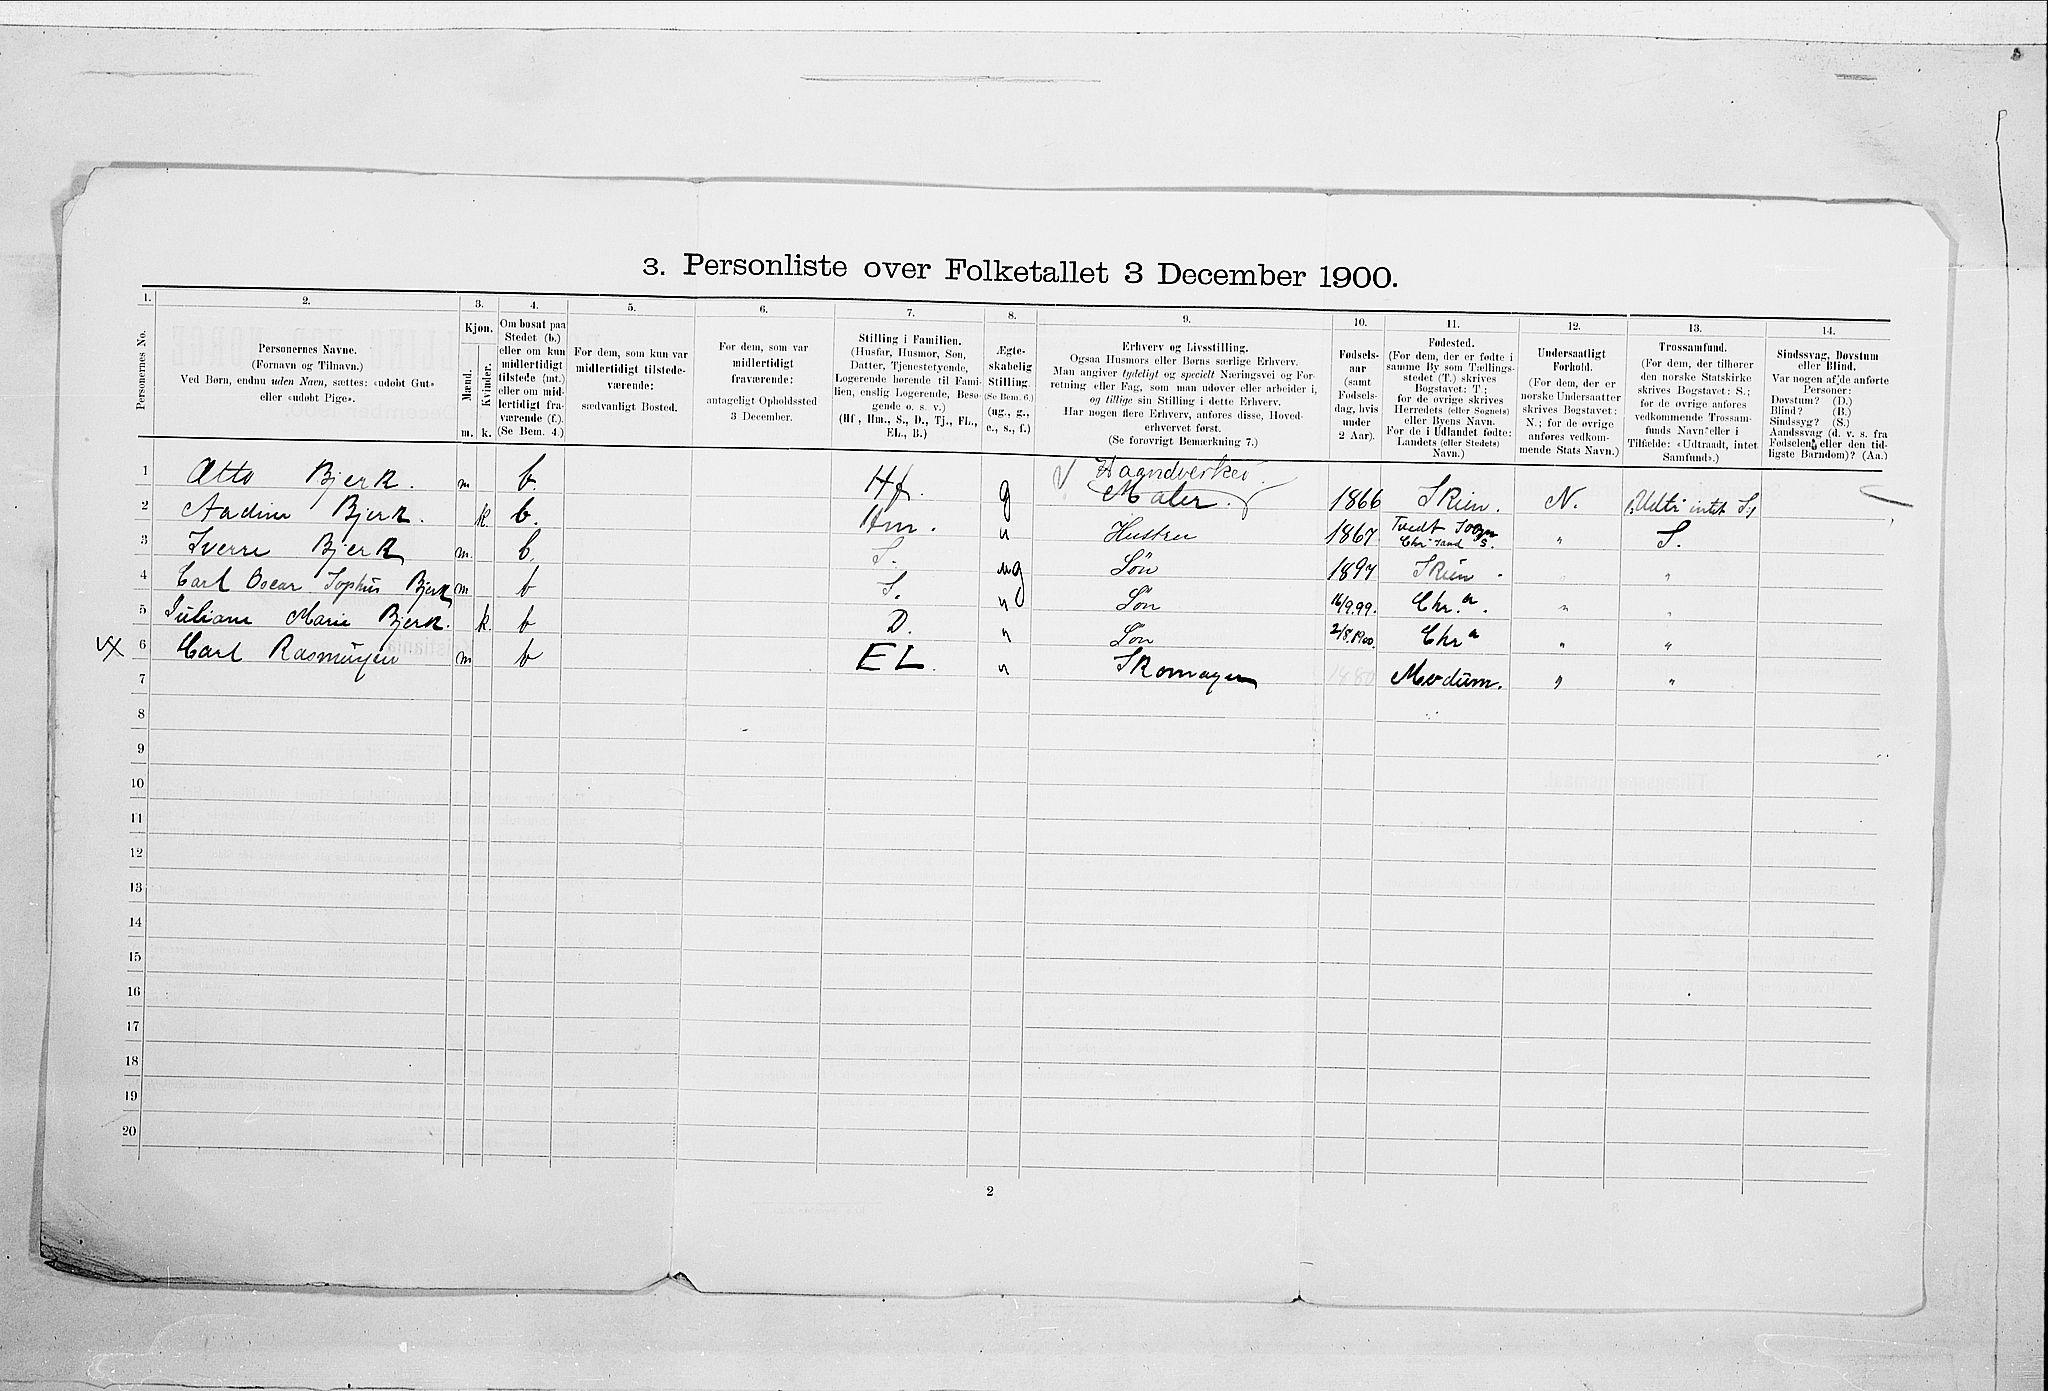 3. Personliste over Folketallet 3 December 1900.
1. 2. 3. 4. 5. 6. 7. 8. 9. 10. 11. 12. 13. 14.
Personernes No.
Personernes Navne.
(Fornavn og Tilnavn.)
Ved Børn, endnu uden Navn, sættes: «udøbt Gut»
eller «udøbt Pige».
Kjøn.
Mænd.
Kvinder.
m. k.
Om bosat paa
Stedet (b.)
eller om kun
midlertidigt
tilstede (mt.)
eller om mid-
lertidigt fra-
værende (f.).
(Se Bem. 4.)
For dem, som kun var
midlertidigt tilstede-
værende:
sædvanligt Bosted.
For dem, som var
midlertidigt
fraværende:
antageligt Opholdssted
3 December.
Stilling i Familien.
(Husfar, Husmor, Søn,
Datter, Tjenestetyende,
Logerende hørende til Fami-
lien, enslig Logerende, Besø-
gende o. s. v.)
(Hf, Hm., S., D., Tj., FL.,
EL., B.)
Ægte-
skabelig
Stilling.
(Se Bem. 6.)
(ug., g.,
e., s., f.)
Erhverv og Livsstilling.
Ogsaa Husmors eller Børns særlige Erhverv.
Man angiver tydeligt og specielt Næringsvei og For-
retning eller Fag, som man udøver eller arbeider i,
og tillige sin Stilling i dette Erhverv.
Har nogen flere Erhverv, anføres disse, Hoved-
erhvervet først.
(Se forøvrigt Bemærkning 7.)
Fødsels-
aar
(samt
Fødsels-
dag, hvis
under
2 Aar).
Fødested.
(For dem, der er fødte i
samme By som Tællings-
stedet (T.) skrives
Bogstavet: T.;
for de øvrige skrives
Herredets (eller Sognets)
eller Byens Navn.
For de i Udlandet fødte:
Landets (eller Stedets)
Navn.)
Undersaatligt
Forhold.
(For dem, der er
norske Undersaatter
skrives Bogstavet:
N.; for de øvrige
anføres vedkom-
mende Stats Navn.)
Trossamfund.
(For dem, der tilhører
den norske Statskirke
skrives Bogstavet: S.;
for de øvrige anføres
vedkommende Trossam-
funds Navn eller i
Tilfælde: «Udtraadt, intet
Samfund».)
Sindssvag, Døvstum
eller Blind.
Var nogen af de anførte
Personer:
Døvstum? (D.)
Blind? (B.)
Sindssyg? (S.)
Aandssvag (d. v. s. fra
Fødselen eller den tid-
ligste Barndom)? (Aa.)
Haandverker
1 Otto Bjerk. m b. Hf. g Maler. 1866 Skien. N. Udtr intet S.
2 Andine Bjerk. k. b. Hm. " Hustru 1867. Tvedt Sogn Chr sand S. " S.
3 Sverre Bjerk m. b. S. ug Søn 1897 Skien " "
4 Carl Oscar Sophus Bjerk m b S. " Søn 16/9.99. Chr.a. " "
5 Juliane Marie Bjerk. k. b D. " Søn 2/8.1900. Chra " "
6 Carl Rasmusen m b EL. " Skomager 1880 Modum. " "
7
8
9
10
11
12
13
14
15
16
17
18
19
20
2